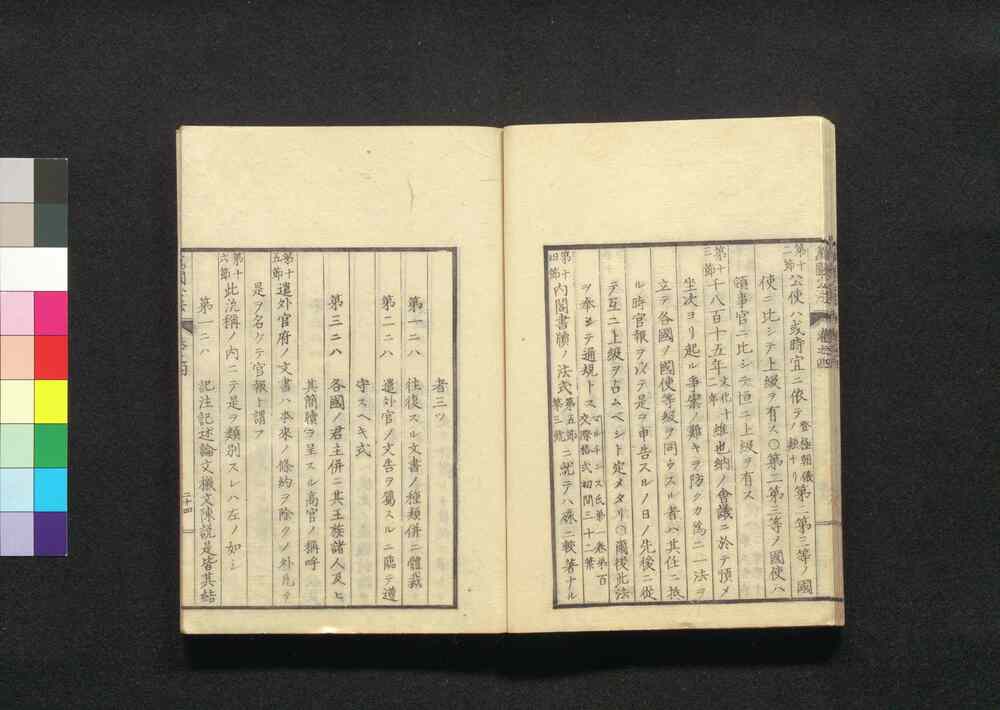 第十二節 公使ハ或時宜ニ依テ登極朝儀ノ類ナリ第二第三等ノ國
使ニ比シテ上級ヲ有ス〇第二第三等ノ國使ハ
領事官ニ比シテ恒ニ上級ヲ有ス
第十三節 千八百十五年文化十二年維也納ノ會議ニ於テ預メ
坐次ヨリ起ル事案ノ難キヲ防クカ為ニ一法ヲ
立テ各國ヲ國使等級ヲ同ウスル者ハ其任ニ抵
ル時官報ヲ以テ是ヲ申告スルノ日ノ先後ニ従
テ互ニ上級ヲ占ムベシト定メタリ〇爾後此法
ヲ奉シテ通規トスマルチンス氏第一卷第百交際格式初聞三十二葉
第十四節 内閣書牘ノ法式第五節第三號ニ就テハ殊ニ較著ナル
者三ツ
第一ニハ 往復スル文書ノ種類併ニ體裁
第二ニハ 遣外官ノ文告ヲ屬スルニ臨テ遵
守スヘキ式
第三ニハ 各國ノ君主併ニ其王族諸人及ヒ
其簡牘ヲ呈スル高官ノ稱呼
第十五節 遣外官府ノ文書ハ本來ノ條約ヲ除クノ外凡テ
是ヲ名ケテ官報ト謂フ
第十六節 此汎稱ノ内ニテ是ヲ類別スレハ左ノ如シ
第一ニハ 記注記述論文檄文陳説是皆其結
二十四